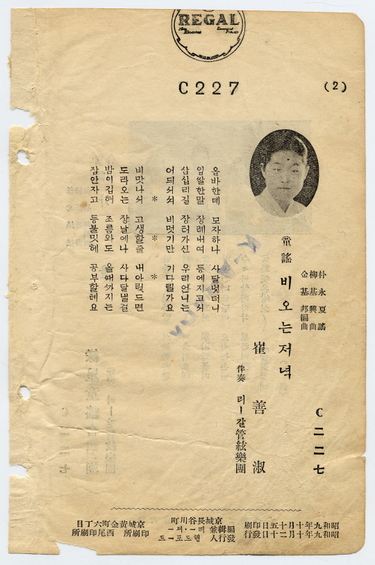 REGAL
C227
(2)
朴永夏謠
柳基興曲
金基邦編曲
童謠 비오는저녁
崔善淑
伴奏 리ー갈管絃樂團
C二二七
옵바한테 모자하나 사달넛더니
입쌀한말 장례내여 등에지고서
삼십리길 장터가신 우리언니는
어듸쉬서 비멋기만 기다릴가요
* *
비맛나쉬 고생할줄 내아릿드면
도라오는 장날에나 사다달넬걸
밤이깁허 조름와도 올때까지는
잠안자고 등불밋헤 공부할레요
昭和九年十月十五日印刷
昭和九年十月二十日發行
編輯兼發行人
京城長谷川町
京城黃金町六丁目
印刷所 西尾印刷所